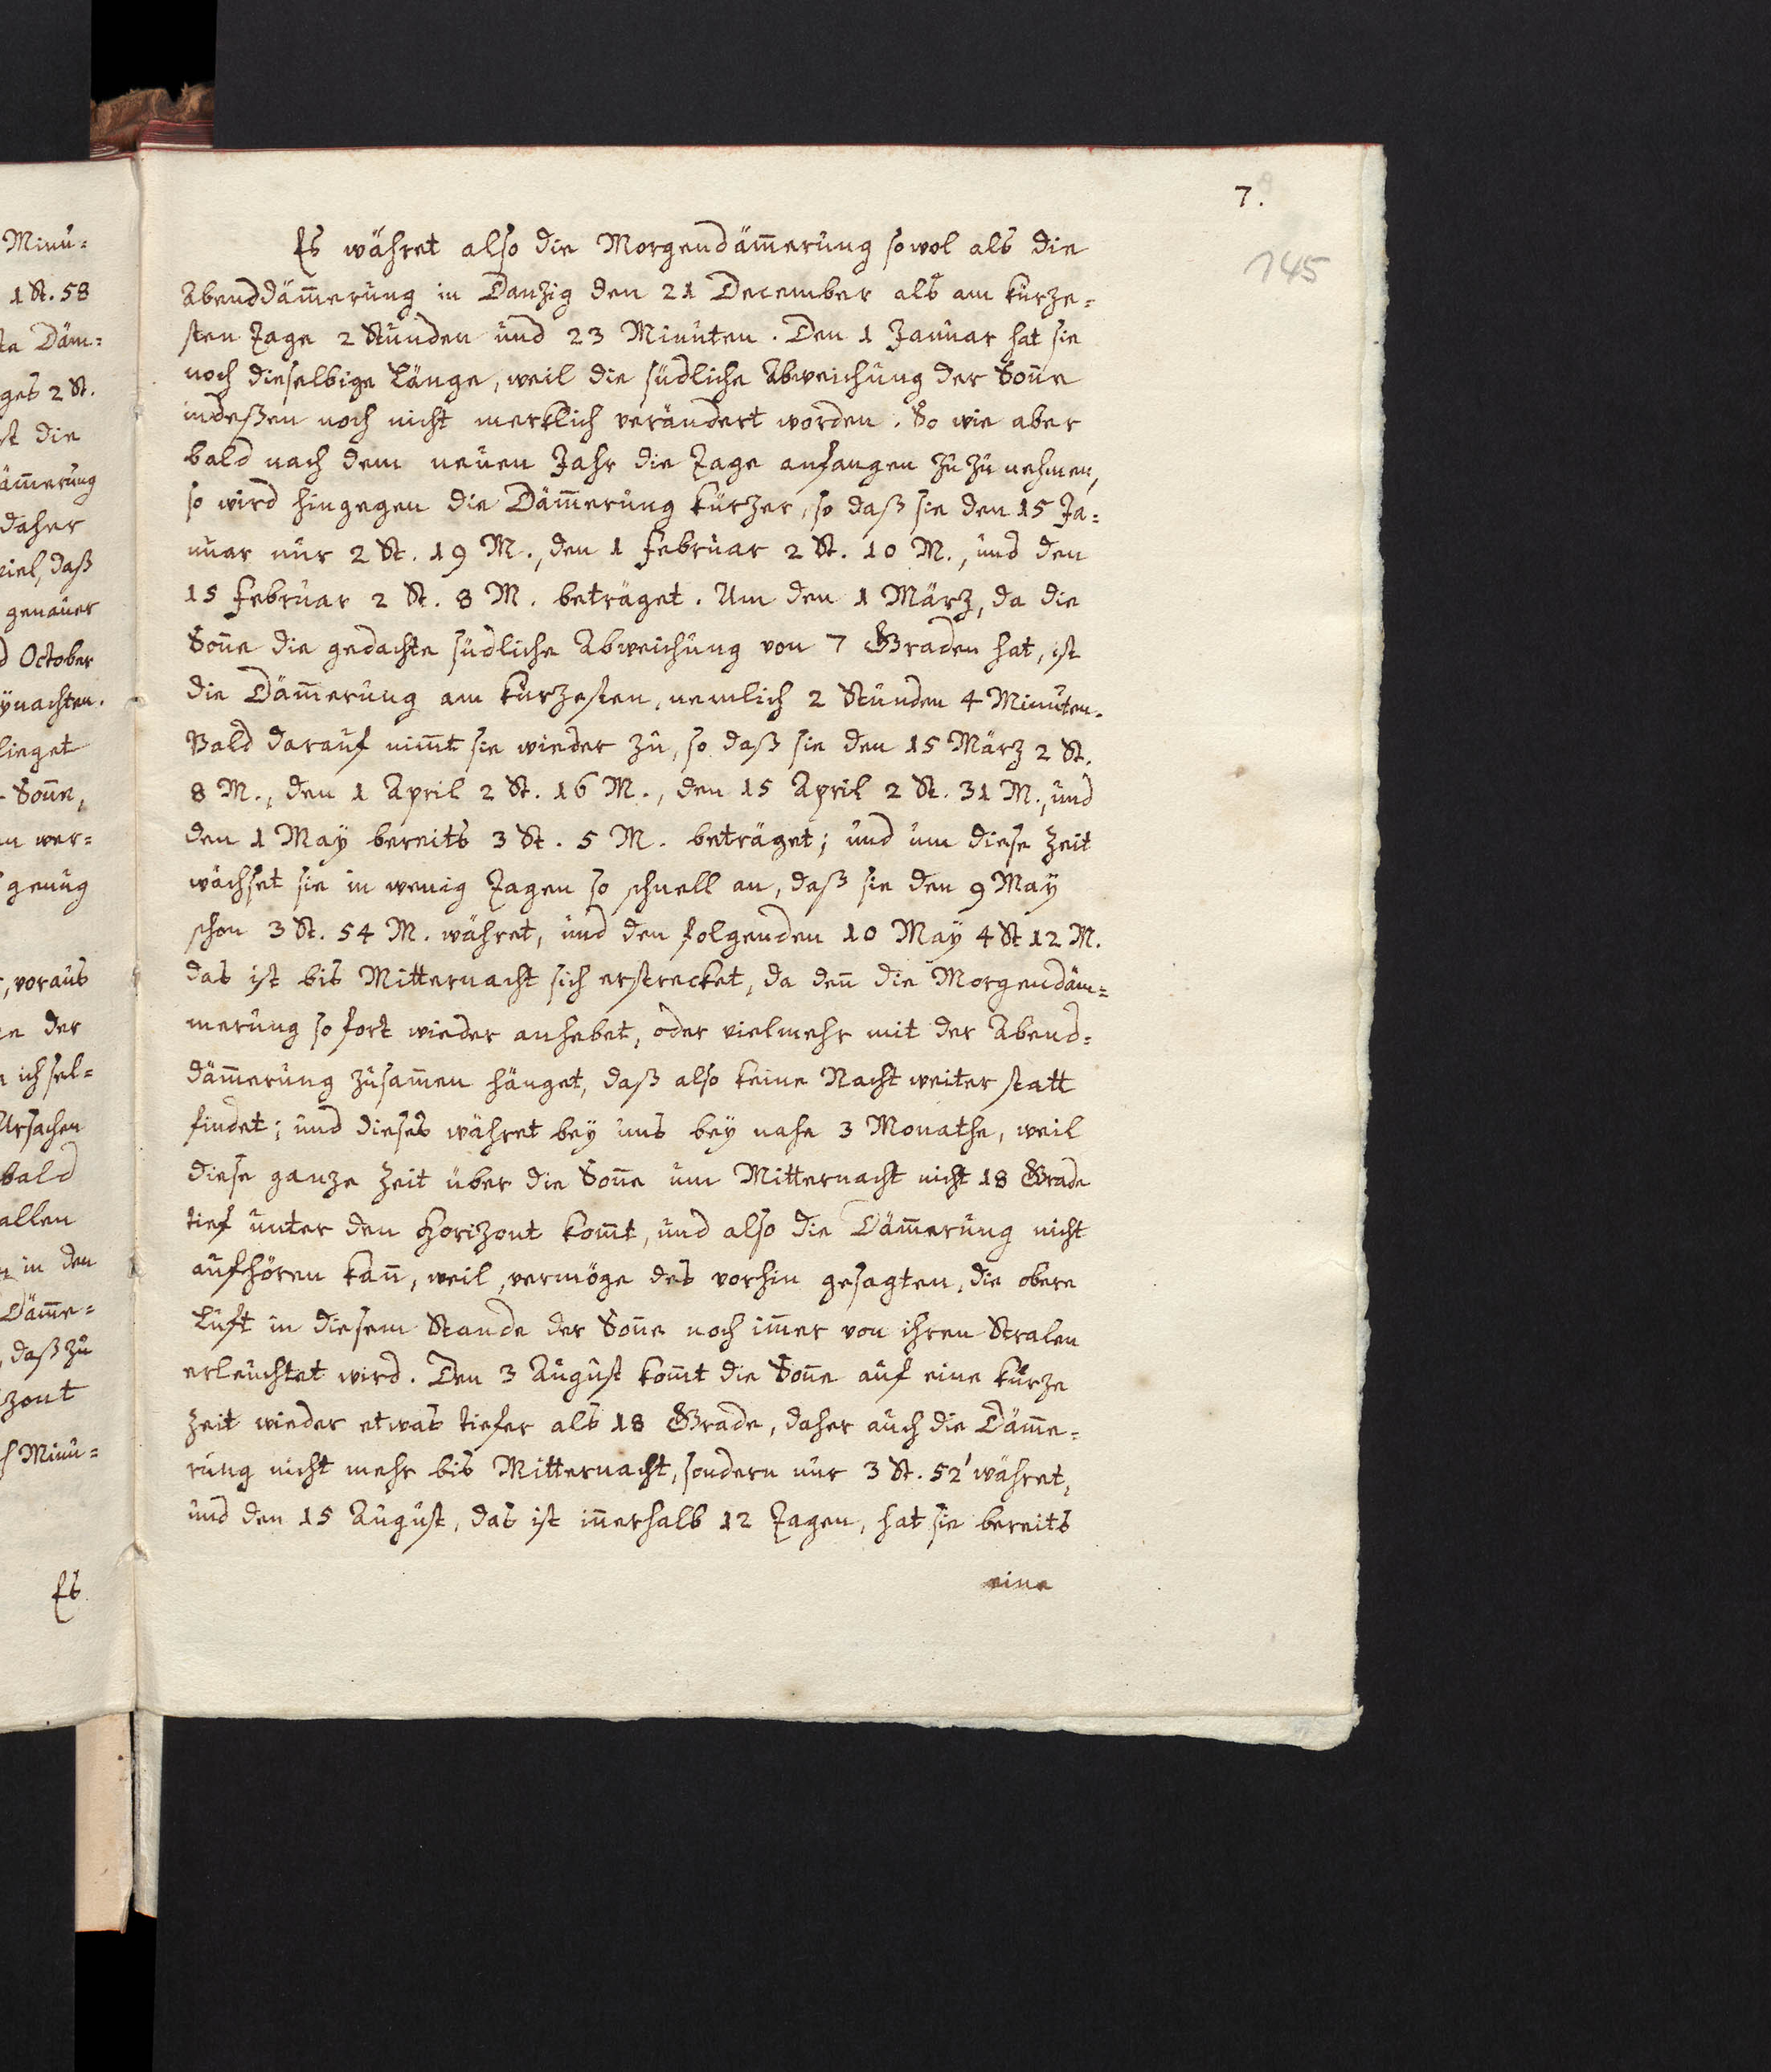 7.
145
Es währet also die Morgendäm̄erung sowol als die
Abenddäm̄erung in Danzig den 21 December als am kürze=
sten Tage 2 Stunden und 23 Minuten. Den 1 Januar hat sie
noch dieselbige Länge, weil die südliche Abweichung der Son̄e
indeßen noch nicht merklich verändert worden. So wie aber
bald nach dem neuen Jahr die Tage anfangen zuzunehmen,
so wird hingegen die Däm̄erung kürzer, so daß sie den 15 Ja=
nuar nur 2 St. 19 M., den 1 Februar 2 St. 10 M., und den
15 Februar 2 St. 8 M. beträget. Um den 1 März, da die
Son̄e die gedachte südliche Abweichung von 7 Graden hat, ist
die Däm̄erung am kürzesten, nemlich 2 Stunden 4 Minuten.
Bald darauf nim̄t sie wieder zu, so daß sie den 15 März 2 St.
8 M., den 1 April 2 St. 16 M., den 15 April 2 St. 31 M., und
den 1 Maÿ bereits 3 St. 5 M. beträget; und um diese Zeit
wächset sie in wenig Tagen so schnell an, daß sie den 9 Maÿ
schon 3 St. 54 M. währet, und den folgenden 10 Maÿ 4 St 12 M.
das ist bis Mitternacht sich erstrecket, da den̄ die Morgendäm=
merung so fort wieder anhebet, oder vielmehr mit der Abend=
däm̄erung zusam̄en hänget, daß also keine Nacht weiter statt
findet; und dieses währet beÿ uns beÿ nahe 3 Monathe, weil
diese ganze Zeit über die Son̄e um Mitternacht nicht 18 Grade
tief unter den Horizont kom̄t, und also die Däm̄erung nicht
aufhören kan̄, weil, vermöge des vorhin gesagten, die obere
Luft in diesem Stande der Son̄e noch im̄er von ihren Stralen
erleuchtet wird. Den 3 August kom̄t die Son̄e auf eine kurze
Zeit wieder etwas tiefer als 18 Grade, daher auch die Däm̄e=
rung nicht mehr bis Mitternacht, sondern nur 3 St. 52' währet,
und den 15 August, das ist in̄erhalb 12 Tagen, hat sie bereits
eine